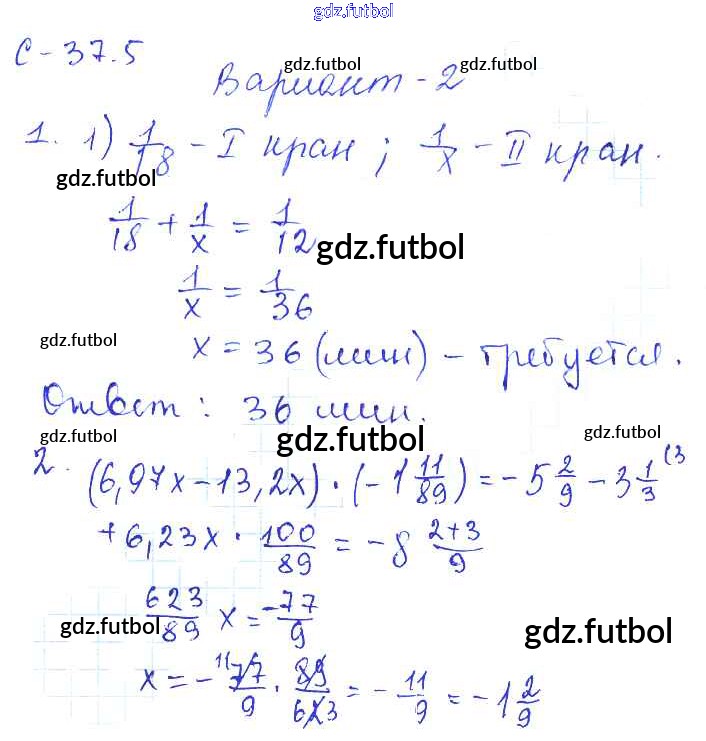 gdz.futbol
С-37.5
gdz.futbol gdz.futbol
Вариант-2
1. 1) 1/18 - I кран ; 1/x - II кран.
gdz.futbol
1/18 + 1/x = 1/12
gdz.futbol
1/x = 1/36
gdz.futbol
x = 36 (мин) - требуется.
Ответ: 36 мин.
gdz.futbol gdz.futbol
2. (6,97x - 13,2x) · (-1 11/89) = -5 2/9 - 3 1/3 (3
+ 6,23x · 100/89 = -8 2+3/9
623/89 x = -77/9
gdz.futbol gdz.futbol
x = - 11 77/9 · 89/623 = - 11/9 = -1 2/9
gdz.futbol